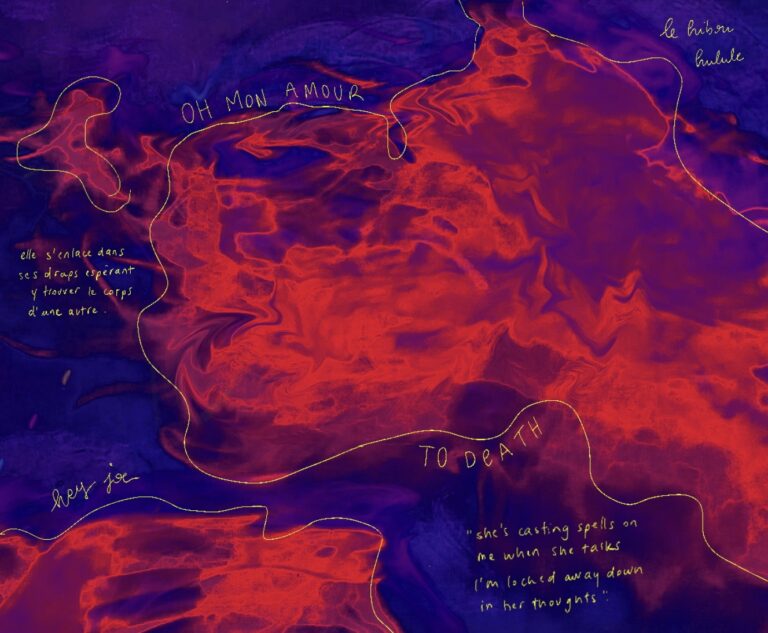 le hibou
hulule
OH MON AMOUR
elle s'enlace dans
ses draps espérant
y trouver le corps
d'une autre.
TO DEATH
hey joe
"she's casting spells on
me when she talks
I'm locked away down
in her thoughts".